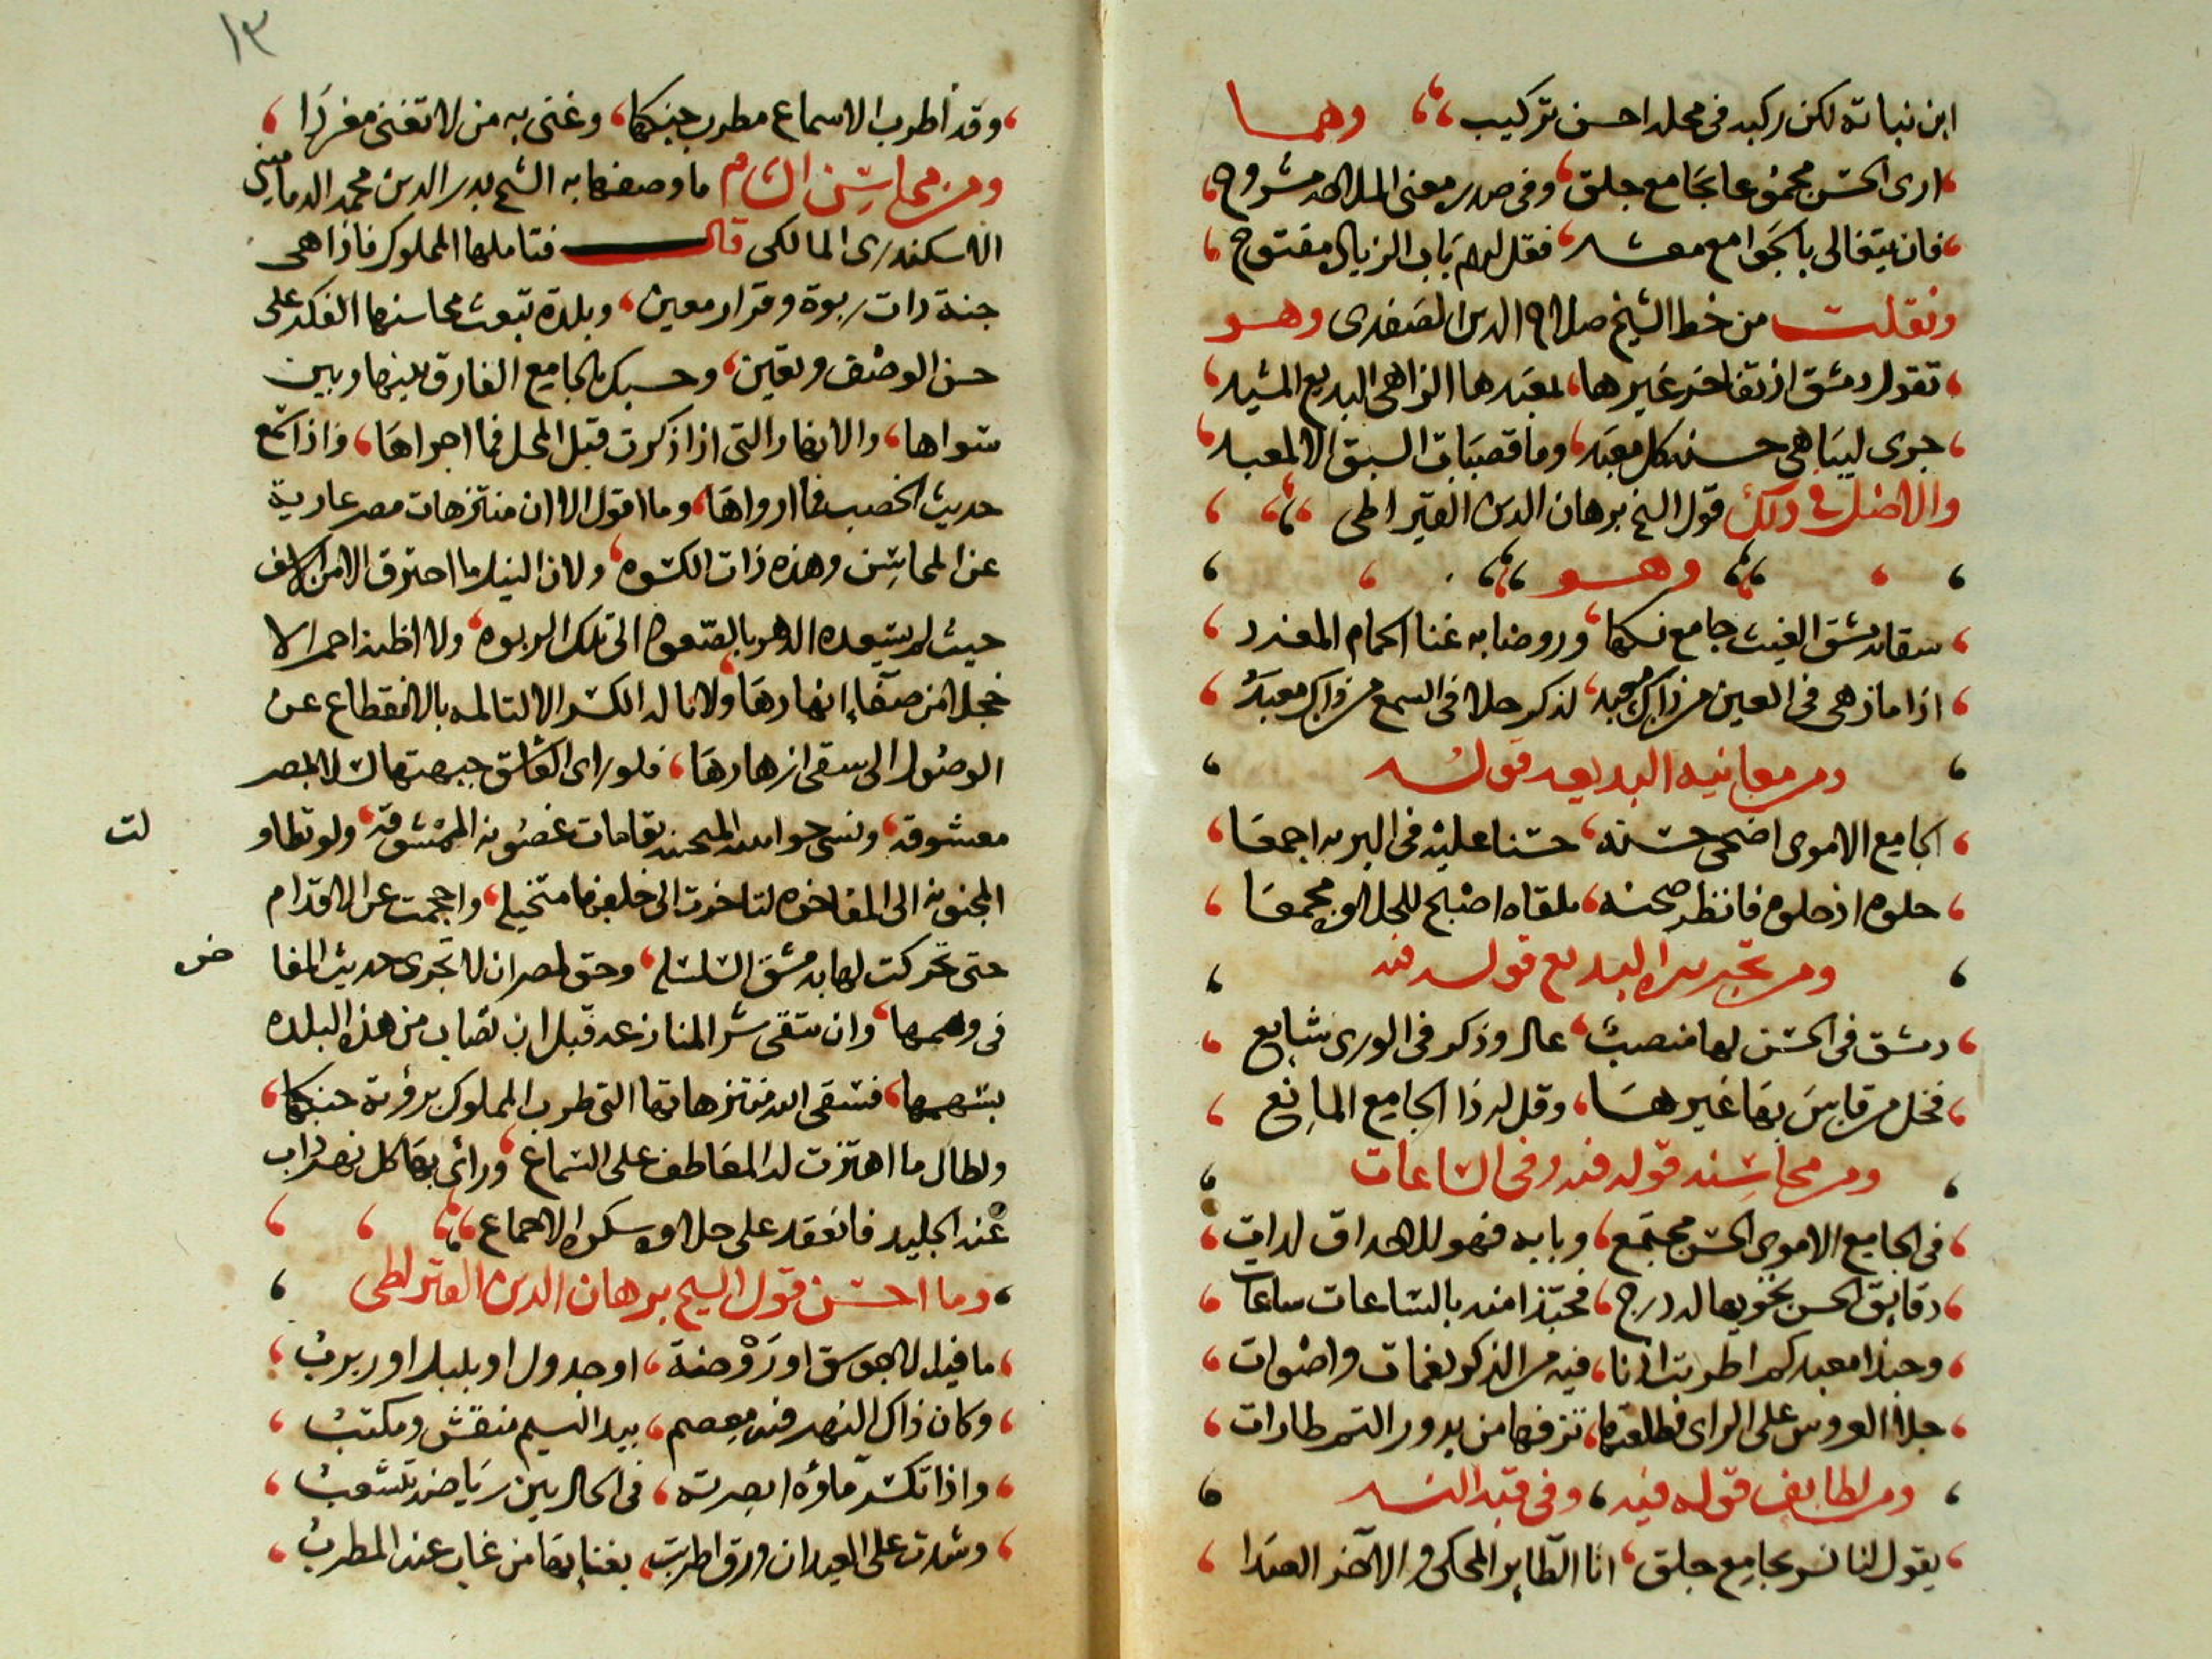 ابن نباتة لكن ركبه في محله احسن تركيب وهما
ارى الحسن مجموعا بجامع جلق وفي صدره معنى الملاحة مشروح
فان يتغالى بالجوامع معشر فقل لهم باب الزيادة مفتوح
ونقلت من خط الشيخ صلاح الدين الصفدي وهو
تقول دمشق اذ تفاخر غيرها بمعبدها الزاهي البديع المشيد
جرى ليباهي حسنه كل معبد وما قصبات السبق الا لمعبد
والاصل في ذلك قول الشيخ برهان الدين القيراطي
وهو
سقا بدمشق الغيث جامع نسكها وروضا به غنا الحمام المغرد
اذا ما زهى في العين من ذاك معبد لذكر حلا في السمع من ذاك معبد
ومن معانيه البديعه قوله
الجامع الاموي اضحى حسنه حسنا عليه في البريه اجمعا
حلوه اذ حلوه فانظر صحنه تلقاه اصبح للحلاوه مجمعا
ومن تحريره البديع قوله فيه
دمشق في الحسن لها منصب عال وذكر في الورى شايع
فخل من قاس بها غيرها وقل له ذا الجامع المانع
ومن محاسنه قوله فيه وفي الساعات
في الجامع الاموي الحسن مجتمع وبابه فيهو للاحداق لدات
دقايق الحسن تحويها له درج فحبذا منه بالساعات ساعات
وحبذا معبد كم اطربت اذنا فيه من الذكر نغمات واصوات
جلا العروس على الراى فطلعتها تزفها من بدور التم طارات
ومن لطايف قوله فيه وفي قبة النسر
يقول لنا نسر بجامع جلق انا الطاير المحكي والاخر الصدا
١٣
وقد اطرب الاسماع مطرب جنكها وغنى به من لا تغنى مغردا
ومن محاسن الشام ما وصفها به الشيخ بدر الدين محمد الدماميني
الاسكندري المالكي قال فتاملها المملوك فاذا هي
جنة ذات ربوة وقرار معين وبلدة تبعث محاسنها الفكر على
حسن الوصف وتعين وحسبك بالجامع الفارق بينها وبين
سواها والانهار التي اذا ذكرت قبل المحل فما اجراها واذا سمع
حديث الخصب فما ارواها وما اقول الا ان منتزهات مصر عارية
عن المحاسن وهذه ذات الكسوه ولان النيل ما احترق الا من الاسف
حيث لم يسعده الدهر بالصعود الى تلك الربوه ولا اظنه احمر الا
خجلا من صفاء انهارها ولا ناله الكسر الا لتالمه بالانقطاع عن
الوصول الى سقي ازهارها فلو راى العاشق جبهتها لسلا بمصر
معشوقه ونسي بقامات غصونه الممشوقه ولو تطاو
لت
المجنونه الى المفاخره لتاخرت الى خلفها متخيله واحجمت عن الاقدام
حتى تحركت لها بدمشق السلسله وحق لمصر ان لا تجرى حديث المفا
خر
في وهمها وان تتقى شر المنازعه قبل ان تصاب من هذه البلده
بسهمها فسقى الله منتزهاتها التي طرب المملوك برؤية جنكها
ولطال ما اهتزت له المعاطف على السماع وراى بها كل نهر ذاب
عنه الجليد فانعقد على حلاوة سكره الاجماع
وما احسن قول الشيخ برهان الدين القيراطي
ما فيه الا جوسق او روضة او جدول او بلبل او ربرب
وكان ذاك النهر فيه معصم بيد النسيم منقش ومكتب
واذا تكسر ماؤه ابصرته في الحال بين رياضه يتشعب
وشدت على العيدان ورق اطربت بغنايها من غاب عنه المطرب